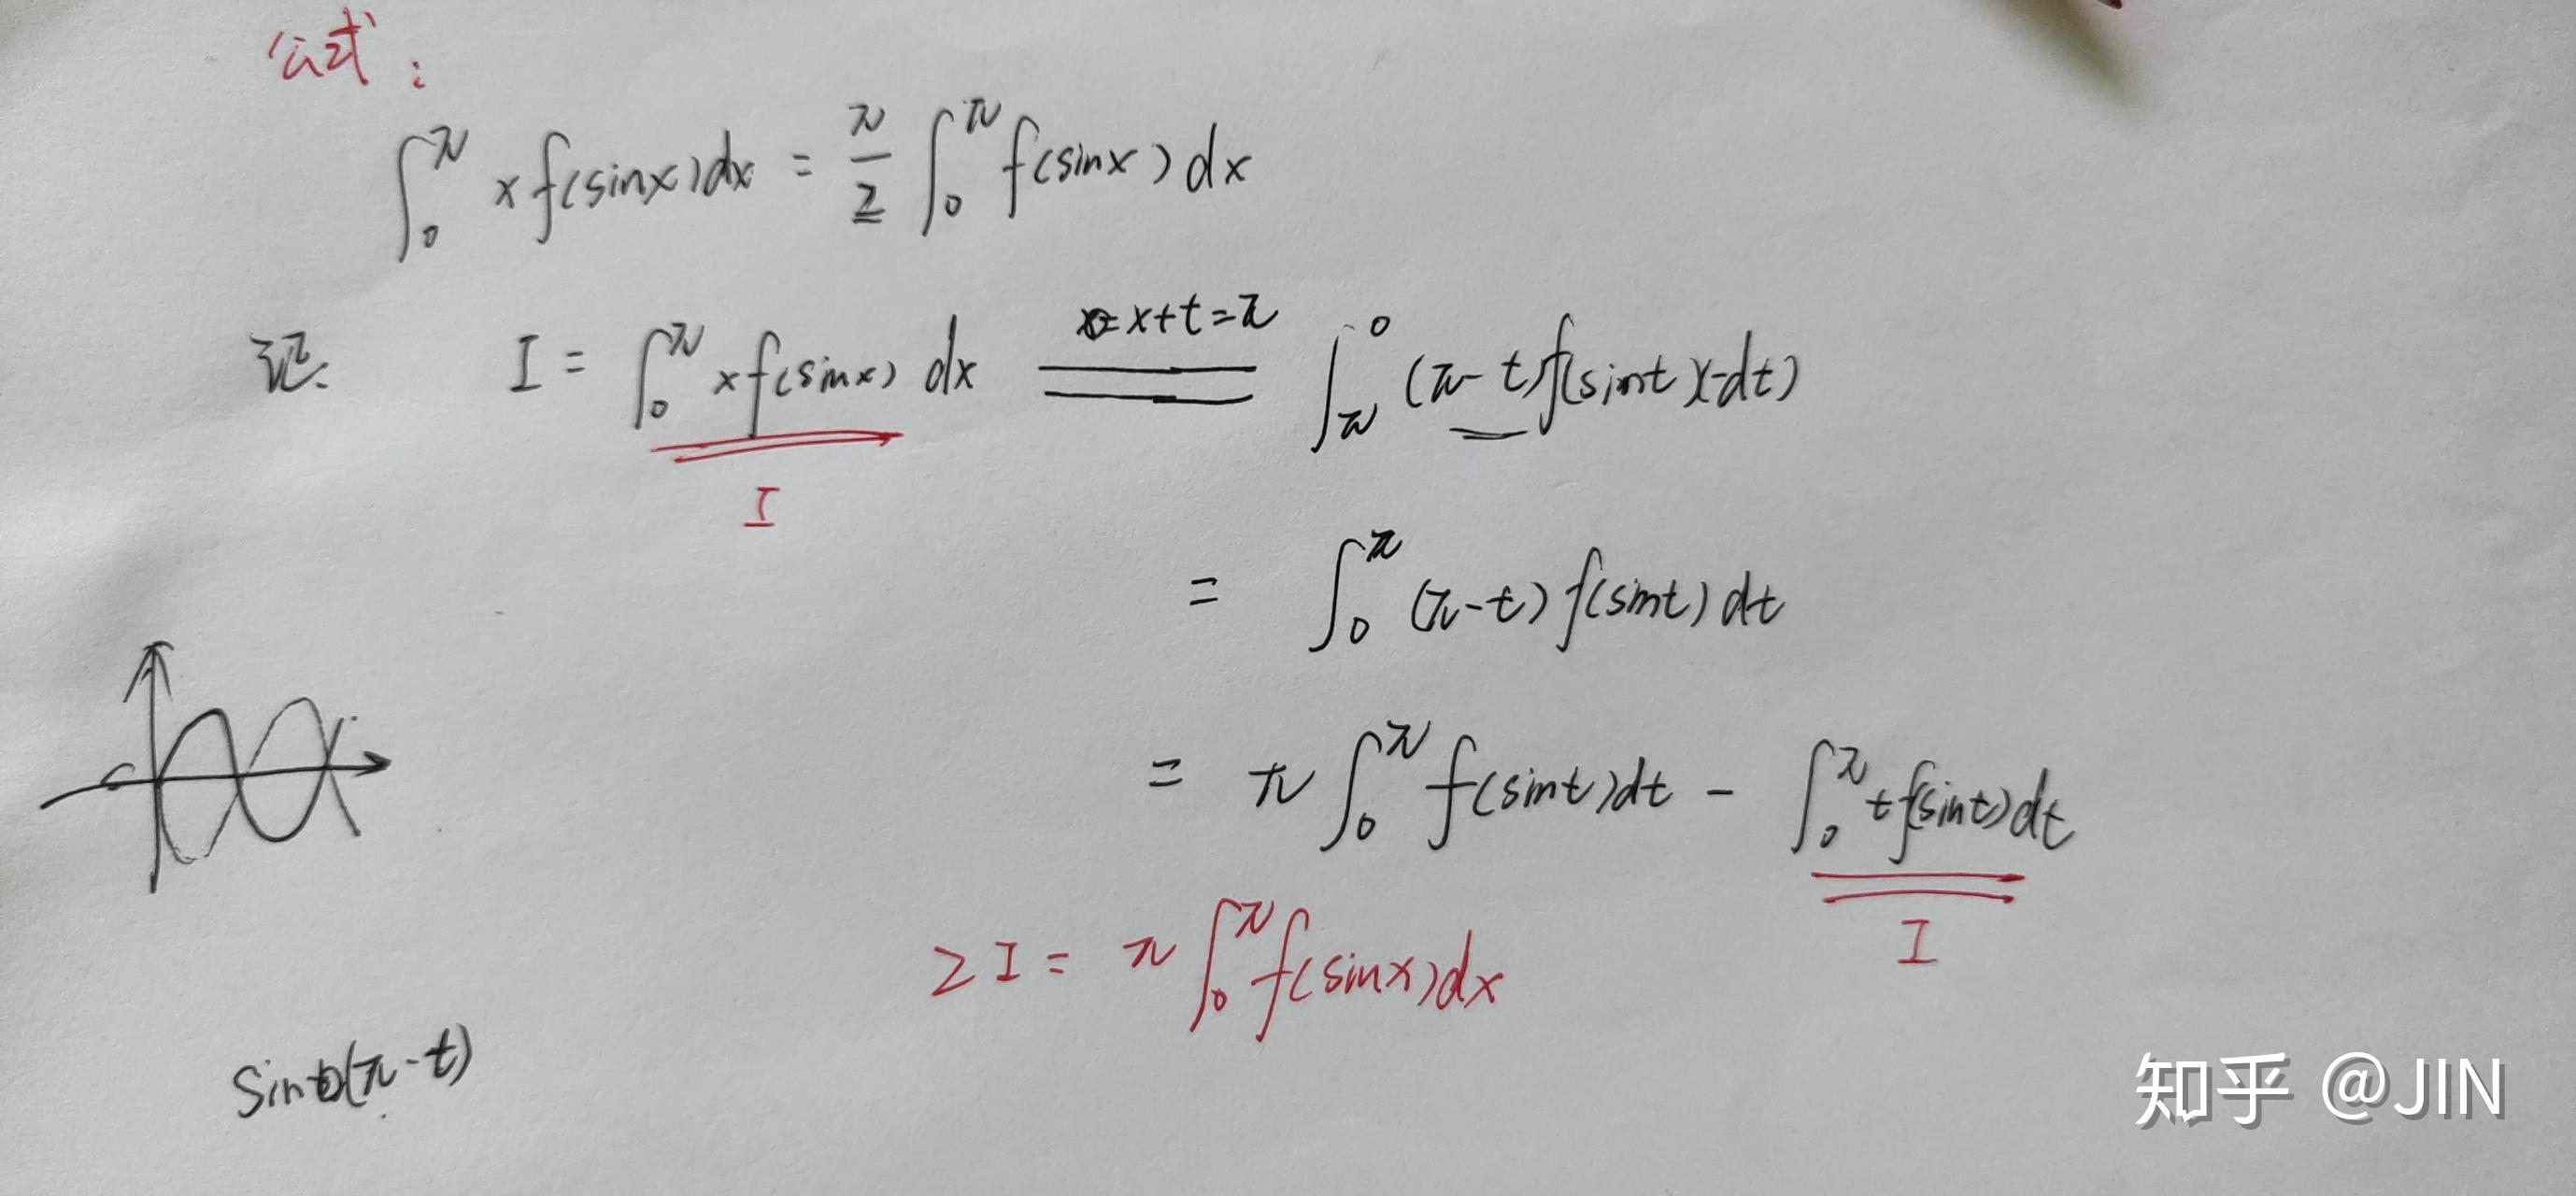 公式：
∫₀^π x f(sinx)dx = π/2 ∫₀^π f(sinx)dx
记. I = ∫₀^π x f(sinx) dx
x+t=π
∫_π^0 (π-t)f(sint)(-dt)
I
= ∫₀^π (π-t) f(sint) dt
= π ∫₀^π f(sint)dt - ∫₀^π t f(sint)dt
I
2I = π ∫₀^π f(sinx)dx
sin(π-t)
知乎 @JIN